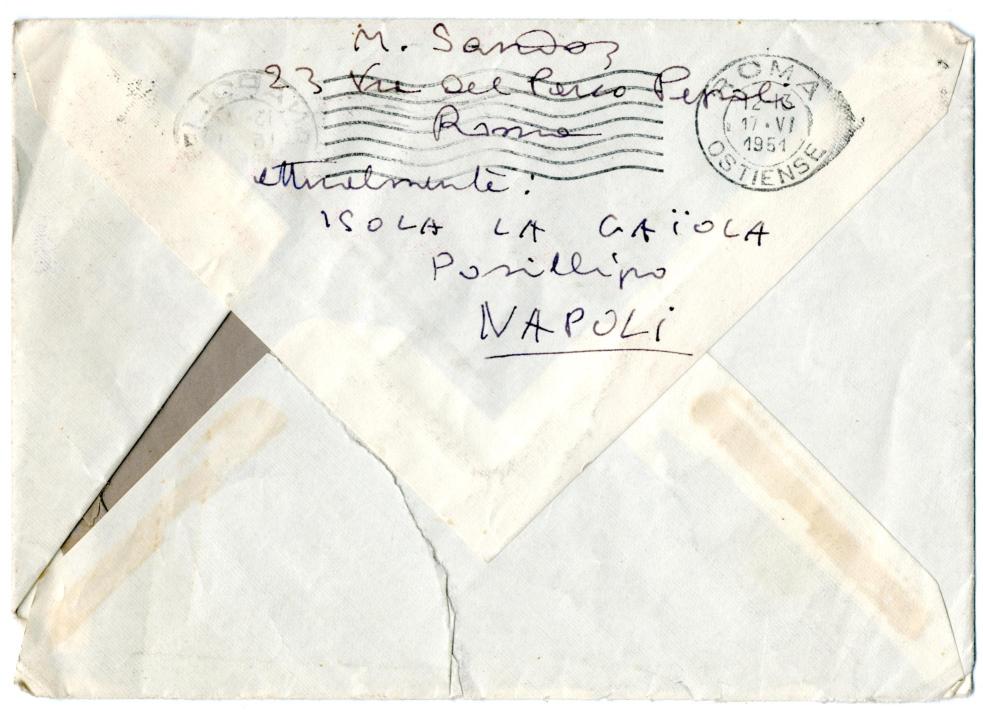 M. Sandoz
23 Via del Parco Pepoli
Roma
attualmente:
ISOLA LA GAÏOLA
Posillipo
NAPOLi
ROMA
12-13
17·VI
1951
OSTIENSE